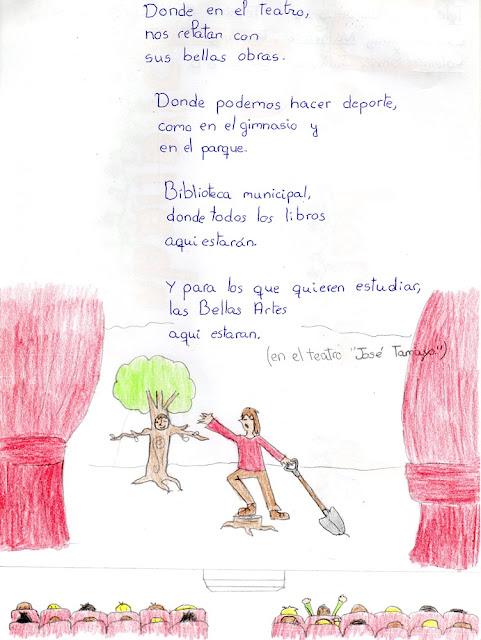 Donde en el teatro,
nos relatan con
sus bellas obras.
Donde podemos hacer deporte,
como en el gimnasio y
en el parque.
Biblioteca municipal,
donde todos los libros
aqui estarán.
Y para los que quieren estudiar,
las Bellas Artes
aqui estaran.
(en el teatro "José Tamayo")